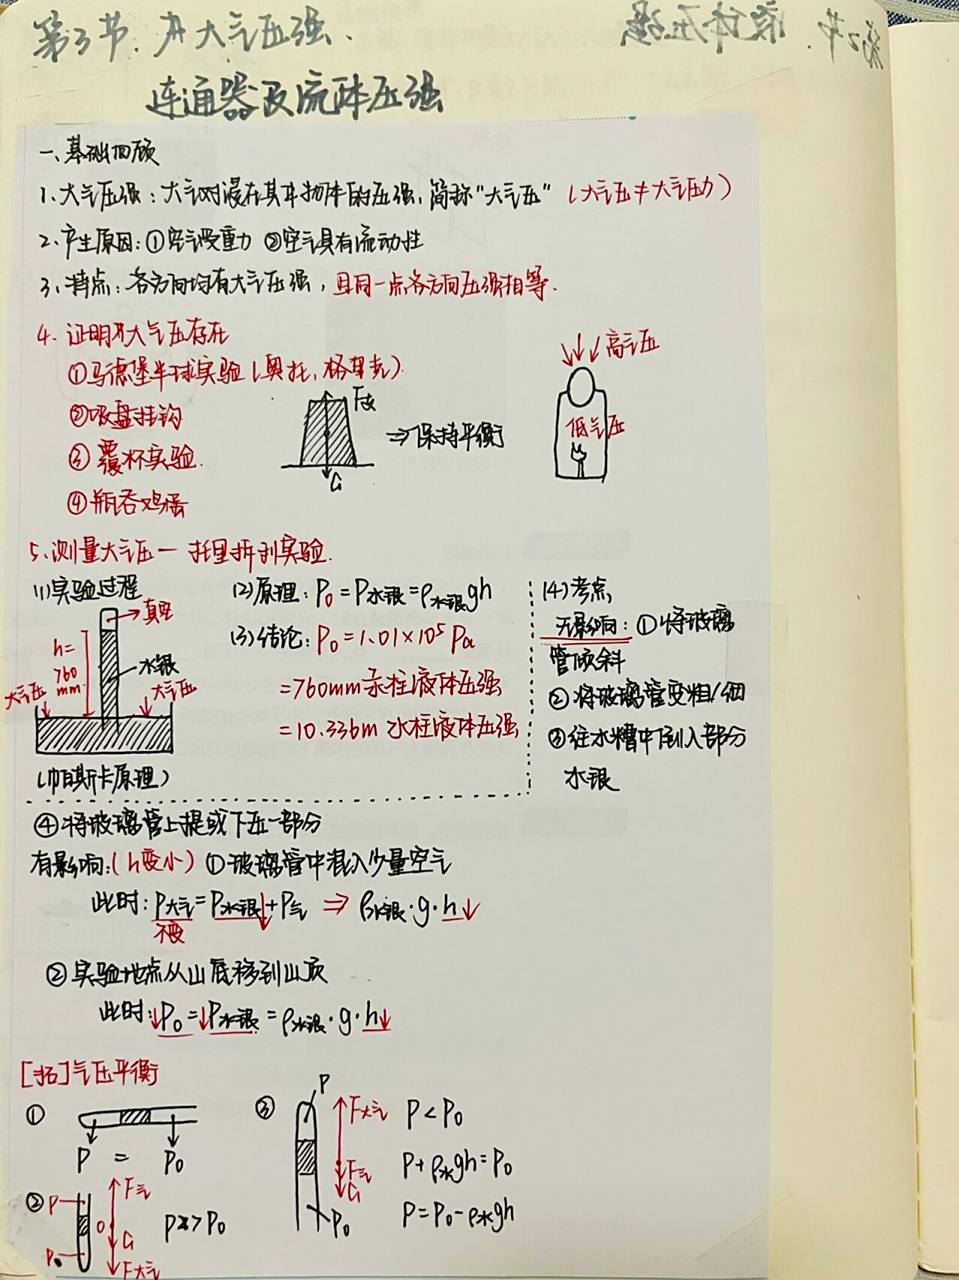 第3节.大气压强.
连通器及流体压强
第2节.液体压强
一、基础回顾
1.大气压强:大气对浸在其中物体的压强,简称"大气压"(大气压≠大气压力)
2.产生原因:①空气受重力 ②空气具有流动性
3.特点:各方向均有大气压强,且同一点各方向压强相等.
4.证明大气压存在
①马德堡半球实验(奥托,格里克)
②吸盘挂钩
③覆杯实验.
④瓶吞鸡蛋
G
⇒保持平衡
高气压
低气压
5.测量大气压一托里拆利实验.
(1)实验过程
真空
h=
760
mm
水银
大气压
大气压
(帕斯卡原理)
(2)原理:P₀=P水银=ρ水银gh
(3)结论:P₀=1.01×10⁵Pa
=760mm汞柱液体压强
=10.336m水柱液体压强
(4)考点
无影响:①将玻璃
管倾斜
②将玻璃管变粗/细
③往水槽中倒入部分
水银
④将玻璃管上提或下压一部分
有影响:(h变小)①玻璃管中混入少量空气
此时:P大气=P水银↓+P气⇒ρ水银·g·h↓
不变
②实验地点从山底移到山顶
此时:↓P₀=↓P水银=ρ水银·g·h↓
[拓]气压平衡
①
P = P₀
②
P
P₀
F气
O
G
F大气
P>P₀
③
P
F大气
F气
G
P₀
P<P₀
P+ρ水gh=P₀
P=P₀-ρ水gh